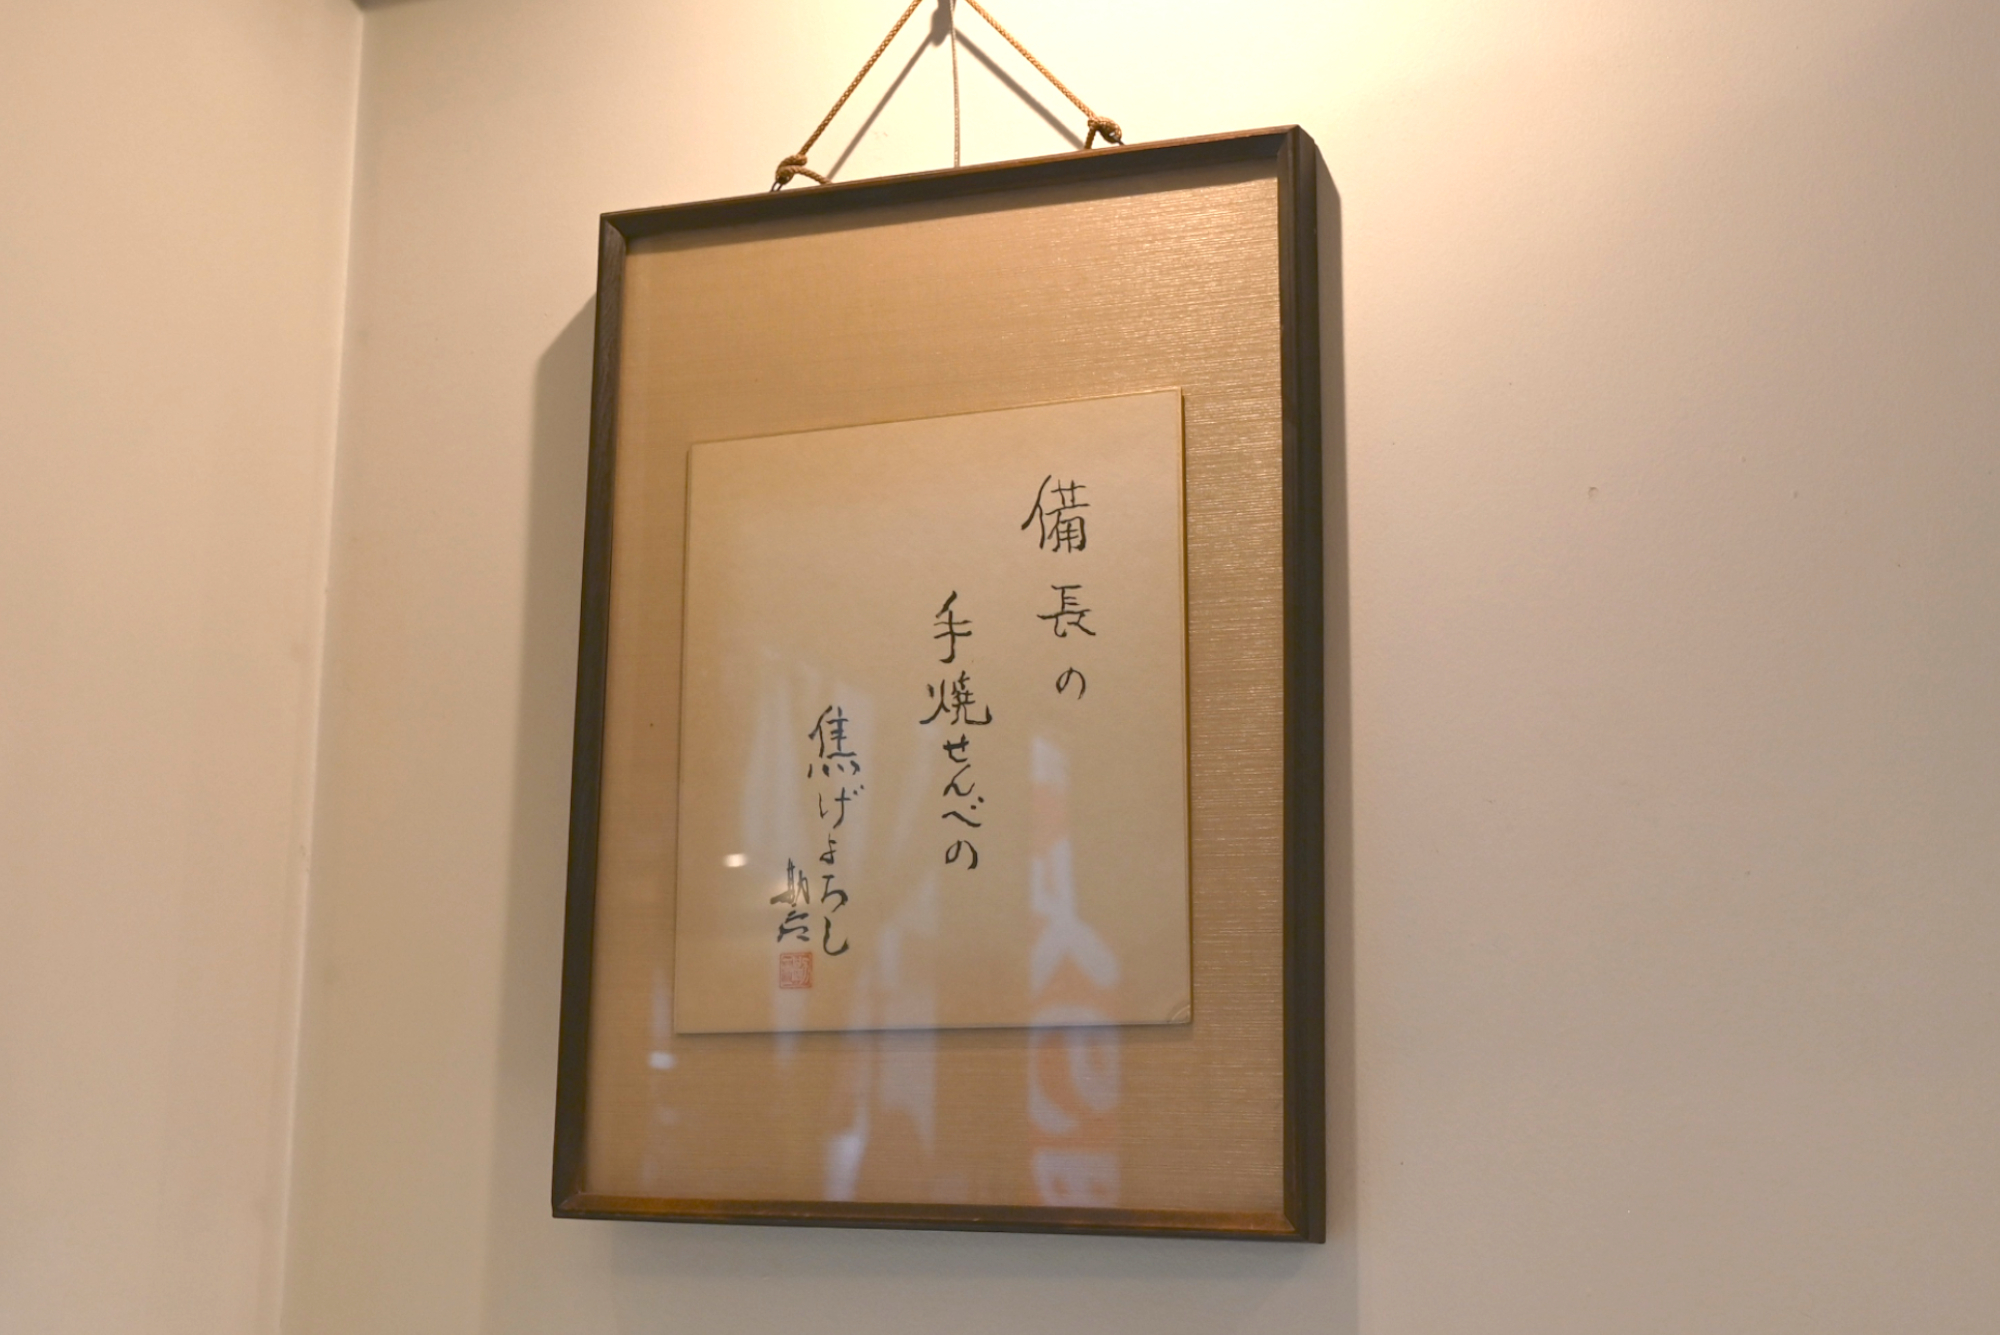 備長の
手焼せんべの
焦げよろし